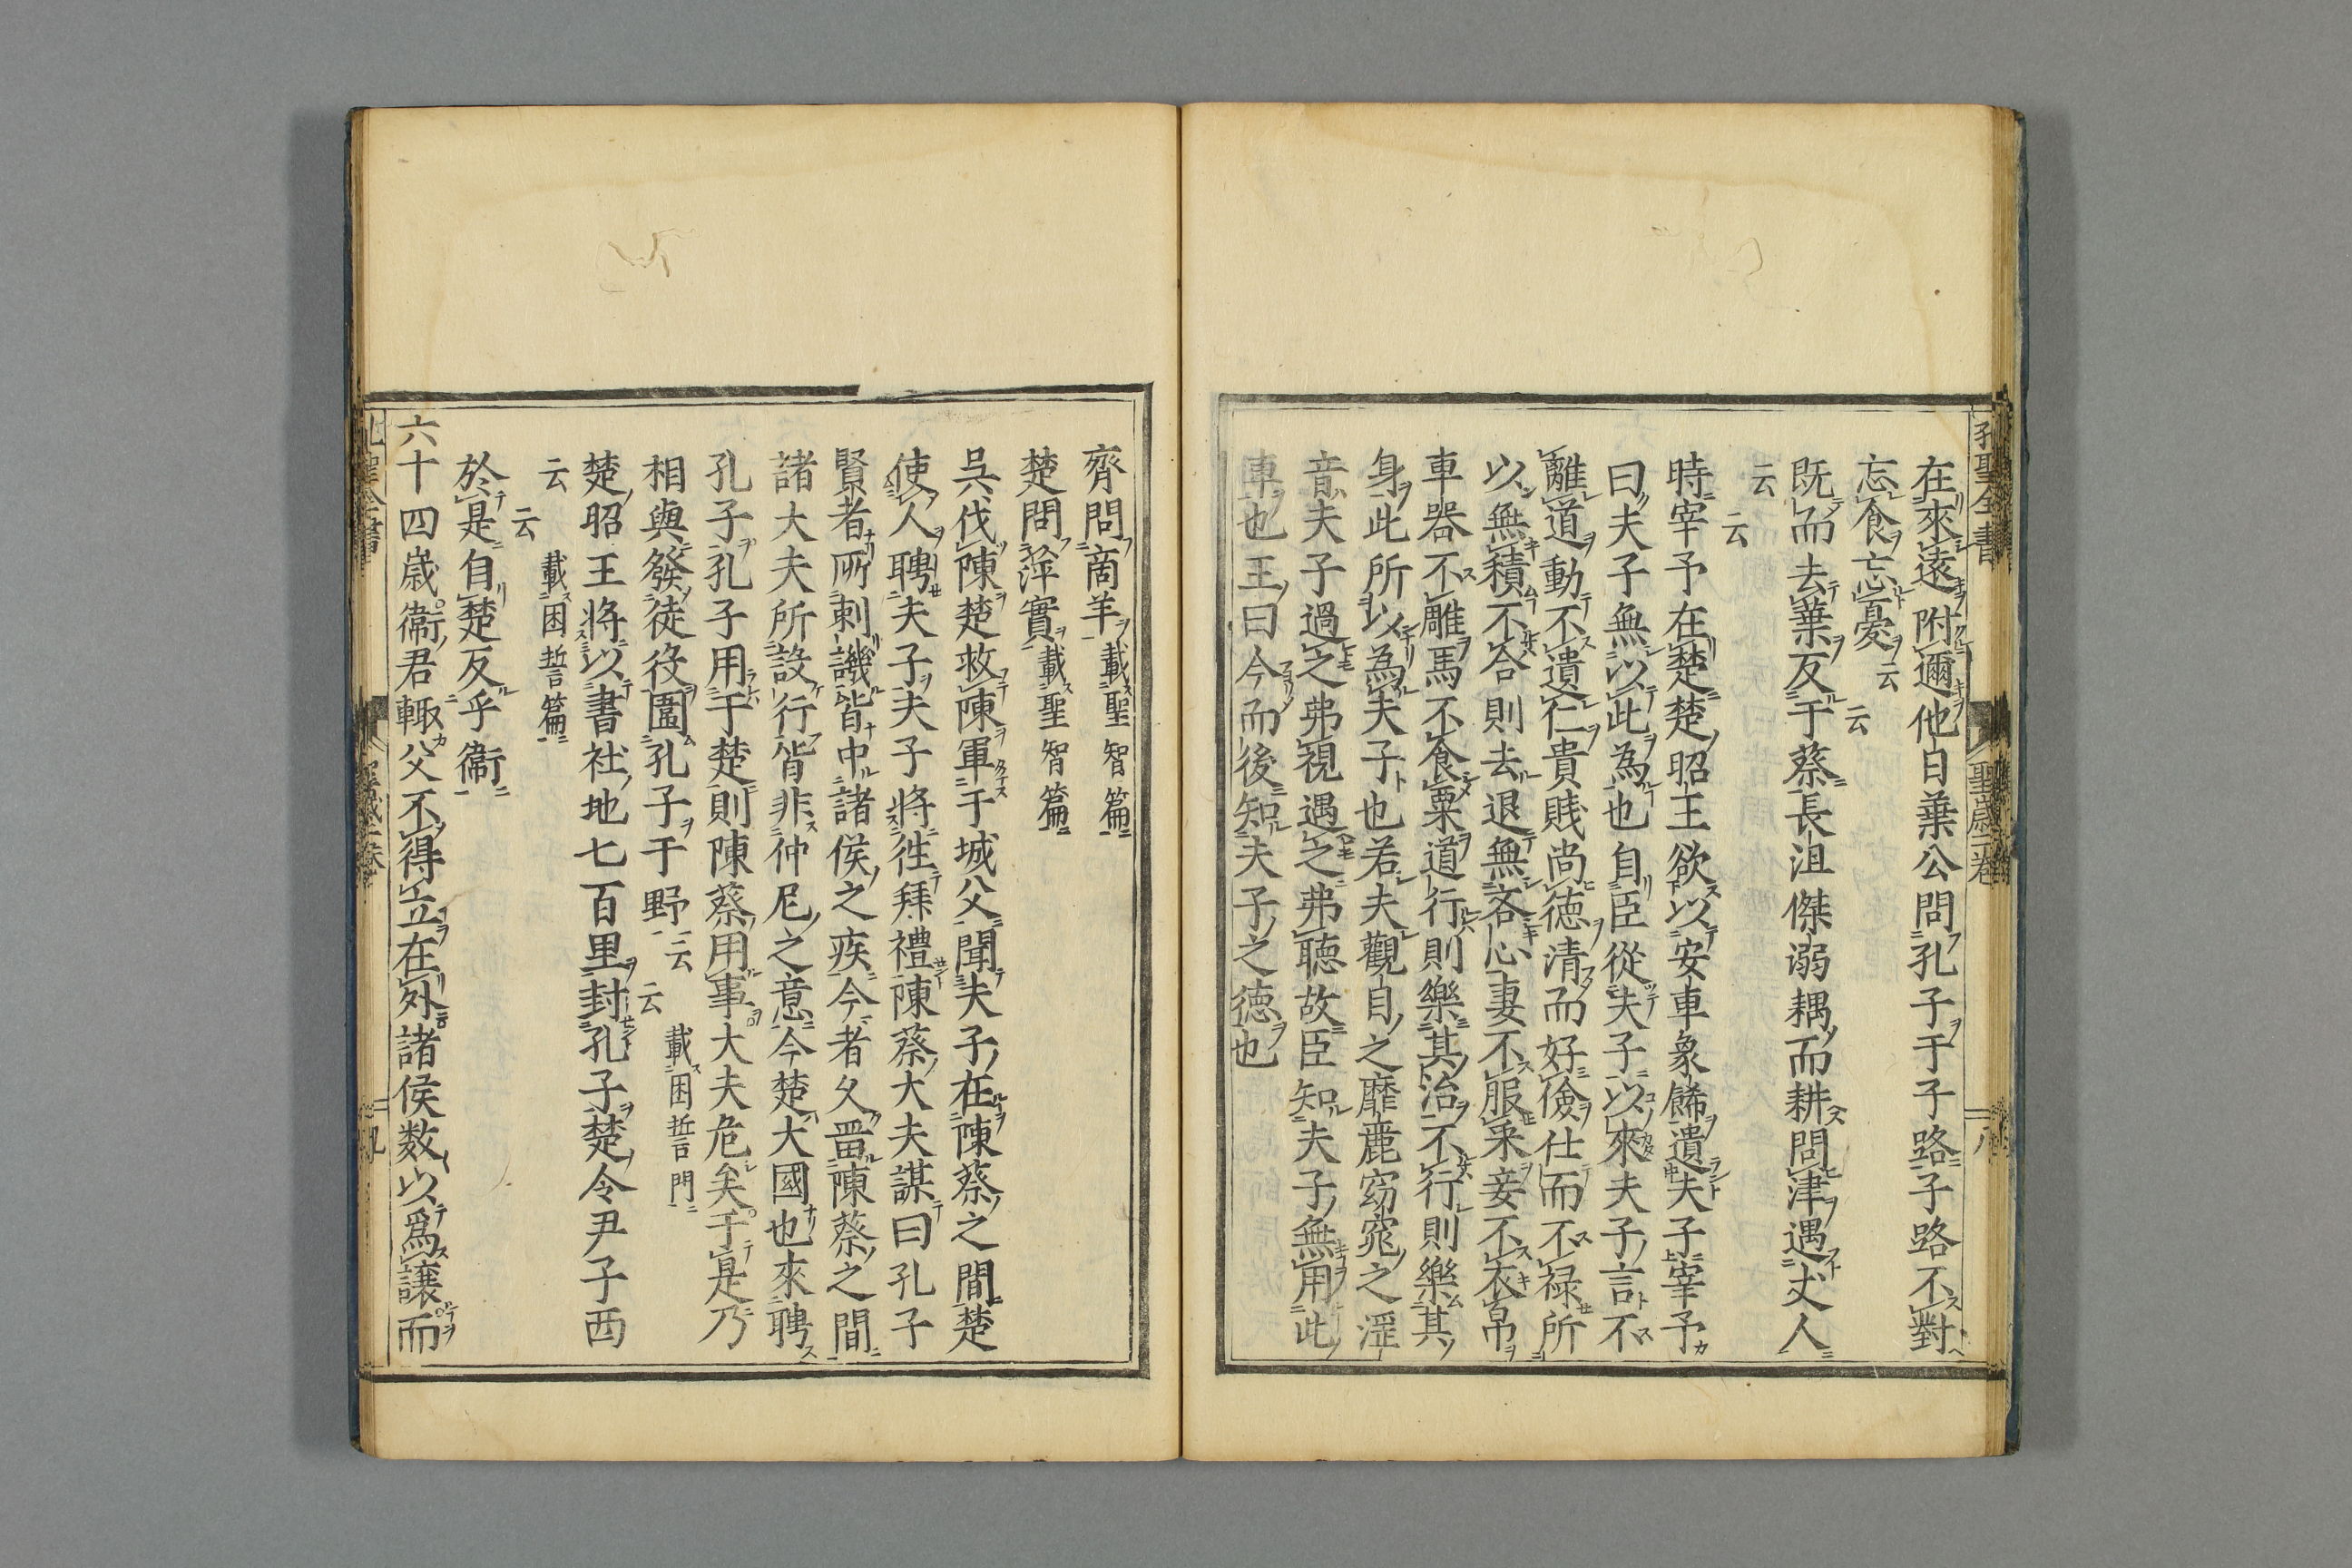 孔聖全書
聖歳二卷
八
在來遠附邇他日葉公問孔子于子路子路不對
忘食忘憂云云
既而去葉反于蔡長沮傑溺耦而耕問津遇丈人
云云
時宰予在楚楚昭王欲以安車象餙遺夫子宰予
曰夫子無以此為也自臣從夫子以來夫子言不
離道動不遺仁貴賎尚徳清而好儉仕而不禄所
以無積不合則去退無吝心妻不服采妾不衣帛
車器不雕馬不食粟道行則樂其治不行則樂其
身此所以為夫子也若夫觀目之靡麗窈窕之滛
音夫子過之弗視遇之弗聴故臣知夫子無用此
車也王曰今而後知夫子之徳也
齊問商羊載聖智篇
楚問萍實載聖智篇
呉伐陳楚救陳軍于城父聞夫子在陳蔡之間楚
使人聘夫子夫子將徃拜禮陳蔡大夫謀曰孔子
賢者所刺譏皆中諸侯之疾今者久畱陳蔡之間
諸大夫所設行皆非仲尼之意今楚大國也來聘
孔子孔子用于楚則陳蔡用事大夫危矣于是乃
相與發徒役圍孔子于野云云載困誓門
楚昭王將以書社地七百里封孔子楚令尹子西
云云載困誓篇
於是自楚反乎衛
六十四歳衛君輙父不得立在外諸侯数以爲讓而
九